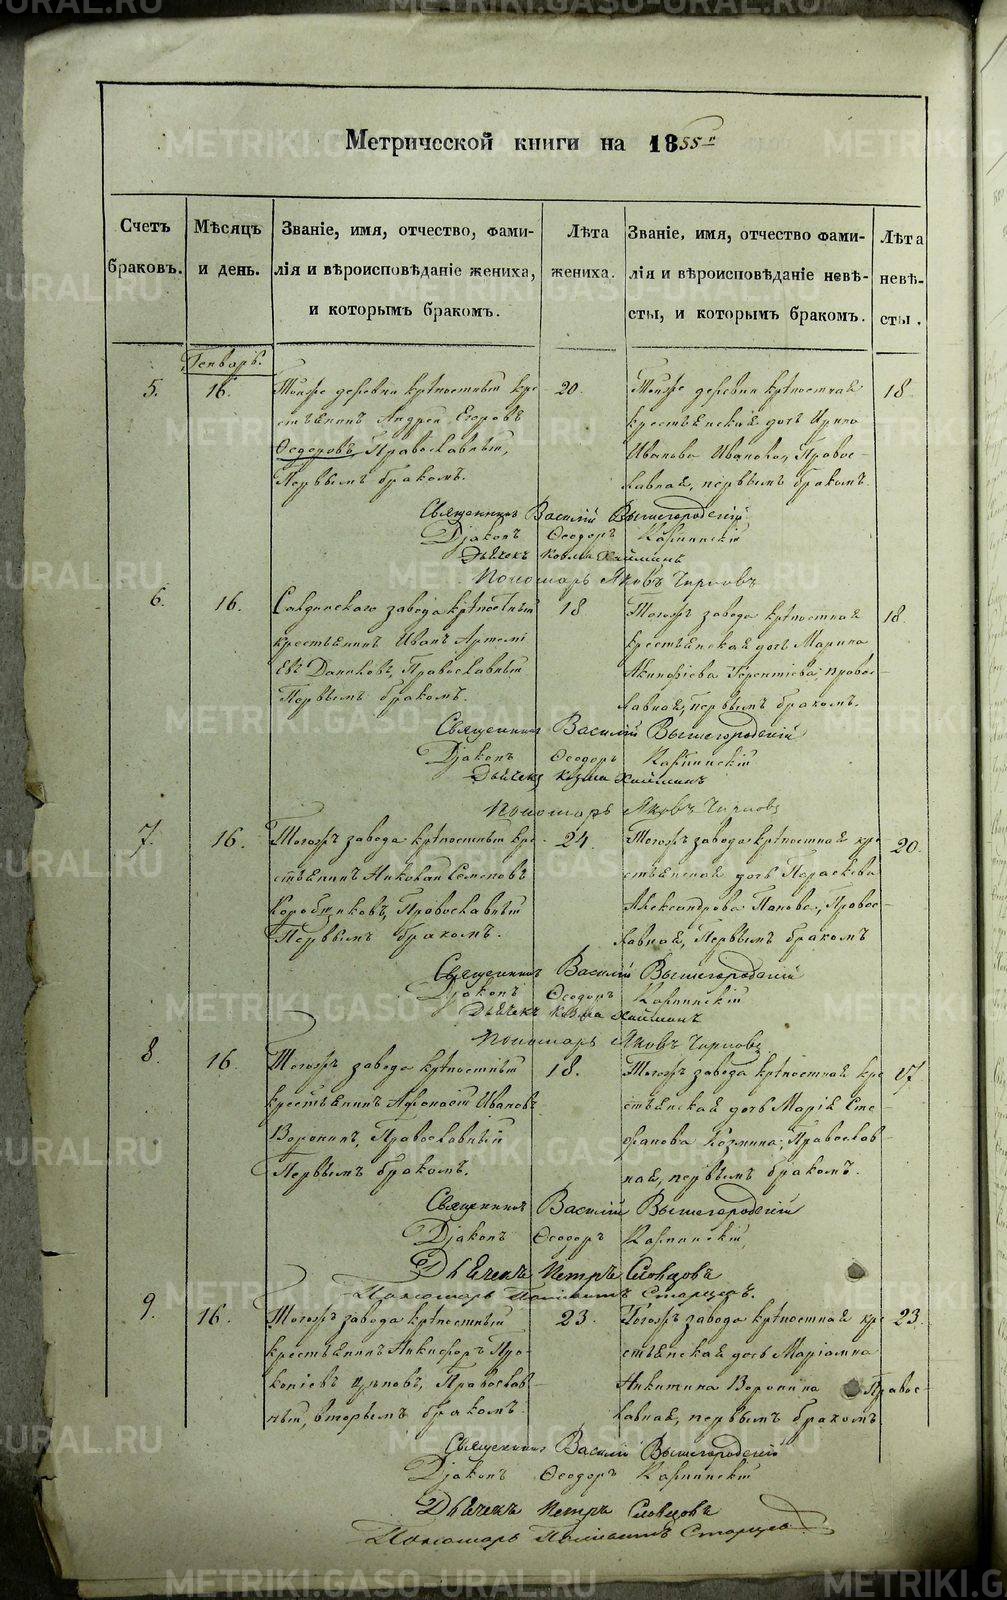 Метрической книги на 1855 г
Счетъ браковъ.
Мѣсяцъ и день.
Званіе, имя, отчество, фами-
лія и вѣроисповѣданіе жениха,
и которымъ бракомъ.
Лѣта
жениха.
Званіе, имя, отчество фами-
лія и вѣроисповѣданіе невѣ-
сты, и которымъ бракомъ.
Лѣта
невѣ-
сты.
Генварь.
5.
16.
Тойже деревни крѣпостный кре-
стьянинъ Андрей Егоровъ
Ѳедоровъ, Православный,
Первымъ бракомъ.
20
Тойже деревни крѣпостная
крестьянская дочь Ирина
Иванова Иванова, Правос-
лавная, первымъ бракомъ.
18
Священникъ Василій Вышегородскій
Діаконъ Ѳеодоръ Карпинскій
Дьячекъ Козма Хайминъ
Пономарь Яковъ Чирковъ
6.
16.
завода крѣпостный
крестьянинъ Иванъ Артемі
евъ Даниловъ, Православный
Первымъ бракомъ.
18
Тогожъ завода крѣпостная
крестьянская дочь Марина
Акинфіева Терентіева, право-
лавная, первымъ бракомъ.
18.
Священникъ Василій Вышегородскій
Діаконъ Ѳеодоръ Карпинскій
Дьячекъ Козма Хайминъ
Пономарь Яковъ Чирковъ
7.
16.
Тогожъ завода крѣпостный кре-
стьянинъ Николай Семеновъ
Коробщиковъ, Православный
Первымъ бракомъ.
24.
Тогожъ завода крѣпостная кре
стьянская дочь Параскева
Александрова Попова, Правос-
лавная, Первымъ бракомъ
20.
Священникъ Василій Вышегородскій
Діаконъ Ѳеодоръ Карпинскій
Дьячекъ Козма Хайминъ
Пономарь Яковъ Чирковъ
8.
16.
Тогожъ завода крѣпостный
крестьянинъ Афонасій Ивановъ
Воронинъ, Православный
Первымъ бракомъ.
18.
Тогожъ завода крѣпостная кре
стьянская дочь Марія Сте-
фанова Козмина, Православ-
ная, первымъ бракомъ.
17
Священникъ Василій Вышегородскій
Діаконъ Ѳеодоръ Карпинскій
Дьячекъ Петръ Словцовъ
Пономарь Старцевъ.
9.
16.
Тогожъ завода крѣпостный
крестьянинъ Никифоръ Про-
копіевъ Православ-
ный, вторымъ бракомъ.
23.
Тогожъ завода крѣпостная кре
стьянская дочь Маріамна
Никитина Воронина Правос-
лавная, первымъ бракомъ
23.
Священникъ Василій Вышегородскій
Діаконъ Ѳеодоръ Карпинскій
Дьячекъ Петръ Словцовъ
Пономарь Старцевъ
METRIKI.GASO-URAL.RU